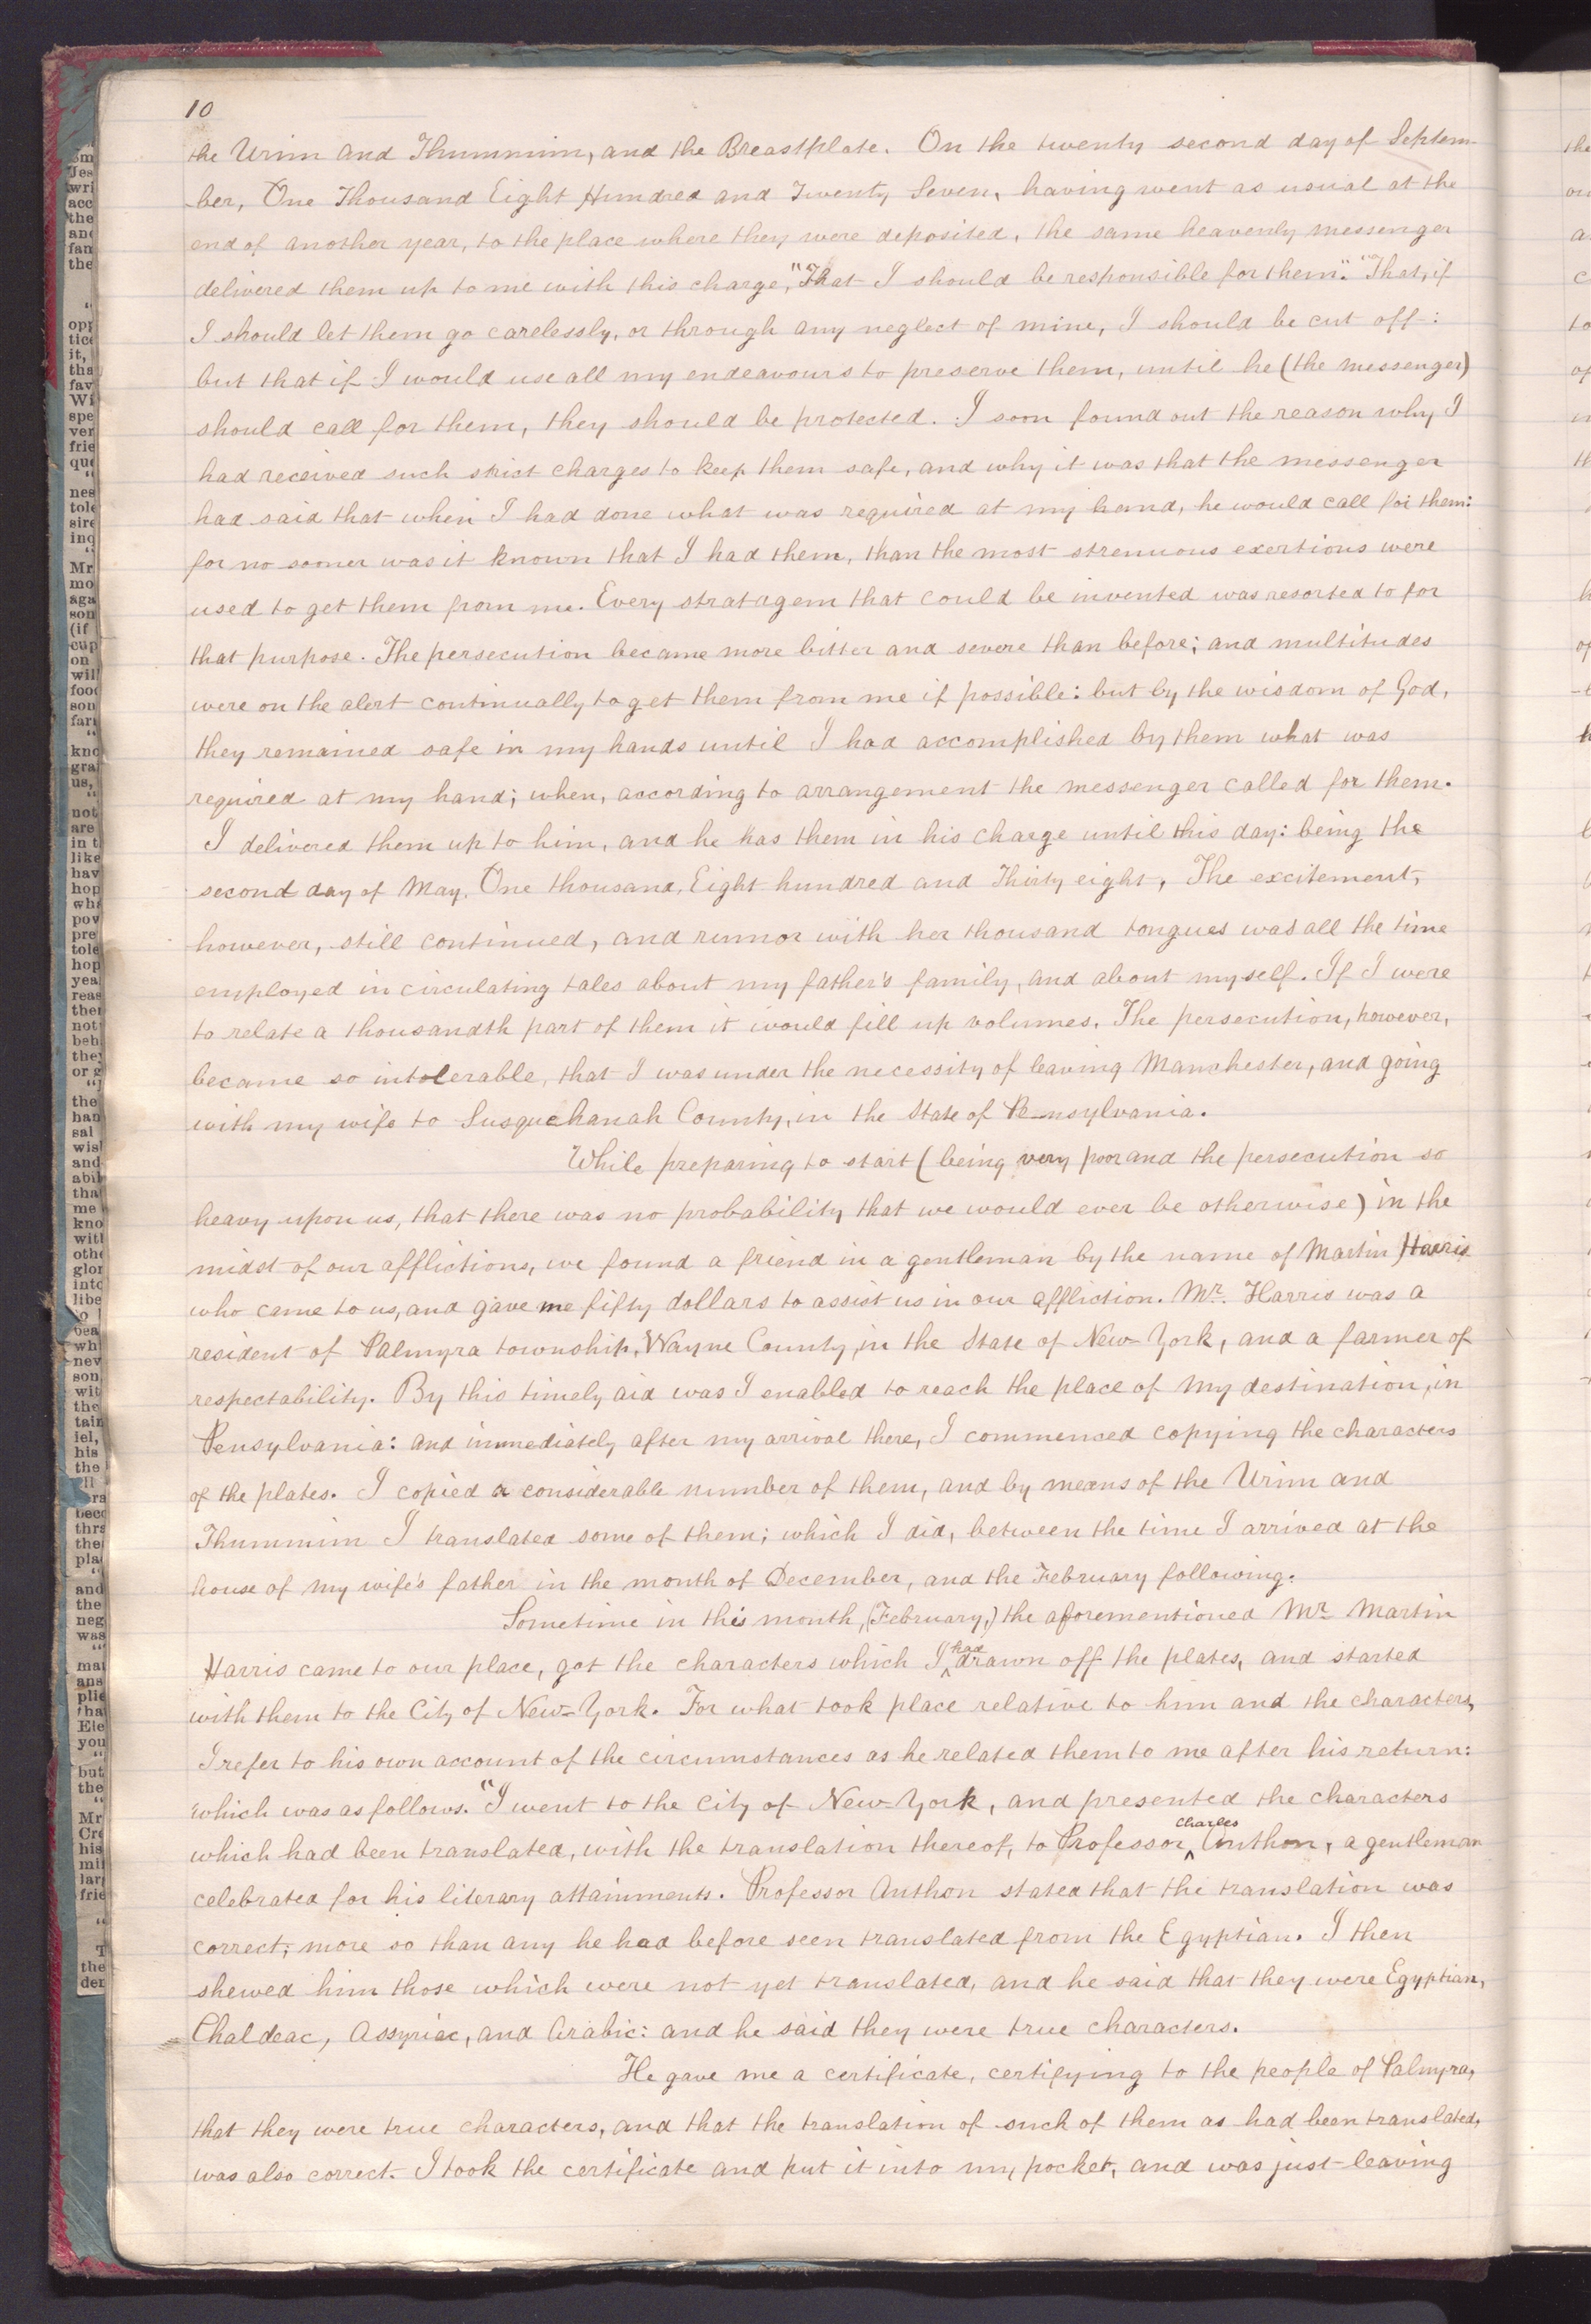 10
the Urim and Thummim, and the Breastplate. On the twenty second day of Septem-
ber, One Thousand Eight Hundred and Twenty Seven, having went as usual at the
end of another year, to the place where they were deposited, the same heavenly messenger
delivered them up to me with this charge, "That I should be responsible for them". "That, if
I should let them go carelessly, or through any neglect of mine, I should be cut off:
but that if I would use all my endeavours to preserve them, until he (the messenger)
should call for them, they should be protected. I soon found out the reason why I
had received such strict charges to keep them safe, and why it was that the messenger
had said that when I had done what was required at my hand, he would call for them:
for no sooner was it known that I had them, than the most strenuous exertions were
used to get them from me. Every stratagem that could be invented was resorted to for
that purpose. The persecution became more bitter and severe than before; and multitudes
were on the alert continually to get them from me if possible: but by the wisdom of God,
they remained safe in my hands until I had accomplished by them what was
required at my hand; when, according to arrangement the messenger called for them.
I delivered them up to him, and he has them in his charge until this day: being the
second day of May, One thousand, Eight hundred and Thirty eight, The excitement,
however, still continued, and rumor with her thousand tongues was all the time
employed in circulating tales about my father's family, and about myself. If I were
to relate a thousandth part of them it would fill up volumes. The persecution, however,
became so intolerable, that I was under the necessity of leaving Manchester, and going
with my wife to Susquehanah County, in the State of Pensylvania.
While preparing to start (being very poor and the persecution so
heavy upon us, that there was no probability that we would ever be otherwise) in the
midst of our afflictions, we found a friend in a gentleman by the name of Martin Harris
who came to us, and gave me fifty dollars to assist us in our affliction. Mr. Harris was a
resident of Palmyra township, Wayne County, in the State of New-York, and a farmer of
respectability. By this timely aid was I enabled to reach the place of my destination, in
Pensylvania: and immediately after my arrival there, I commenced copying the characters
of the plates. I copied a considerable number of them, and by means of the Urim and
Thummim I translated some of them; which I did, between the time I arrived at the
house of my wife's father in the month of December, and the February following.
Sometime in this month, (February,) the aforementioned Mr. Martin
Harris came to our place, got the characters which I ^had drawn off the plates, and started
with them to the City of New-York. For what took place relative to him and the characters,
I refer to his own account of the circumstances as he related them to me after his return:
which was as follows. "I went to the City of New-York, and presented the characters
which had been translated, with the translation thereof, to Professor ^Charles Anthon, a gentleman
celebrated for his literary attainments. Professor Anthon stated that the translation was
correct; more so than any he had before seen translated from the Egyptian. I then
shewed him those which were not yet translated, and he said that they were Egyptian,
Chaldeac, Assyriac, and Arabic: and he said they were true characters.
He gave me a certificate, certifying to the people of Palmyra,
that they were true characters, and that the translation of such of them as had been translated,
was also correct. I took the certificate and put it into my pocket, and was just leaving